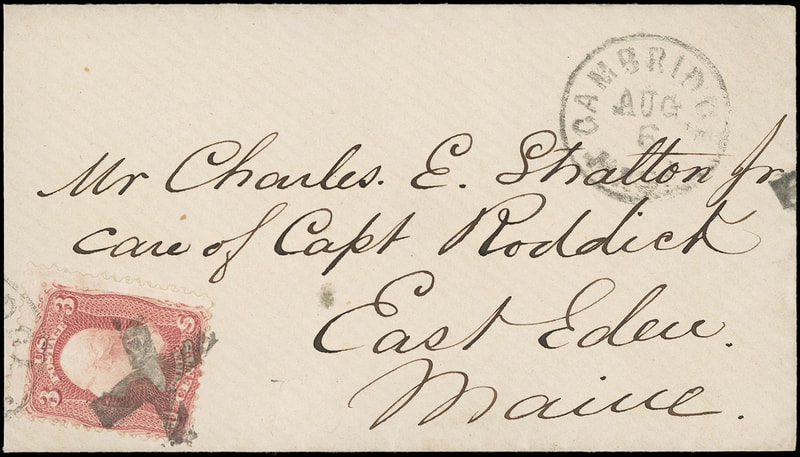 CAMBRIDG
AUG
6
Mr Charles. E. Stratton Jr
care of Capt Roddick
East Eden.
Maine.
3 3
U S
POSTAGE